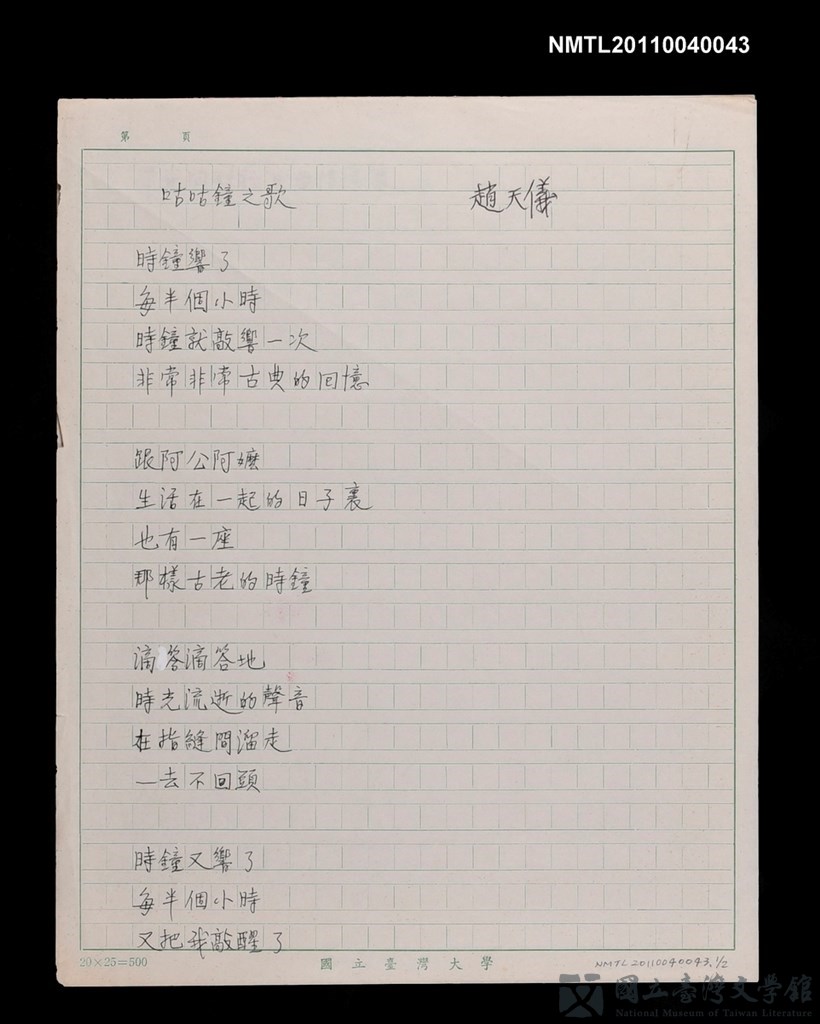 NMTL20110040043
第 頁
咕咕鐘之歌 趙天儀
時鐘響了
每半個小時
時鐘就敲響一次
非常非常古典的回憶
跟阿公阿嬤
生活在一起的日子裏
也有一座
那樣古老的時鐘
滴答滴答地
時光流逝的聲音
在指縫間溜走
一去不回頭
時鐘又響了
每半個小時
又把我敲醒了
20×25=500 國立臺灣大學 NMTL20110040043.1/2
國立臺灣文學館
National Museum of Taiwan Literature